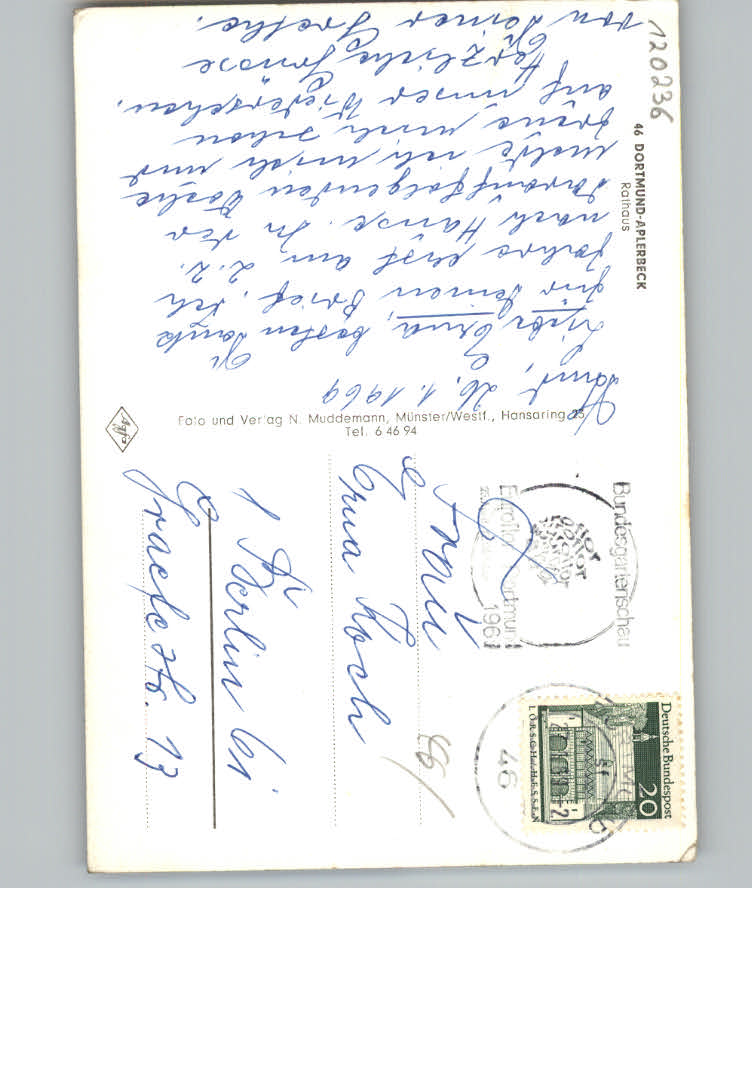 120236
46 DORTMUND-APLERBECK
Rathaus
26.1.1969
Liebe Erna, besten Dank
für Deinen Brief. Ich
fahre erst am 2.2.
nach Hause. In der
darauffolgenden Woche
melde ich mich und
freue mich schon
auf unser Wiedersehen.
Herzliche Grüsse
von Deiner Grethe.
Foto und Verlag N. Muddemann, Münster/Westf., Hansaring 25,
Tel. 6 46 94
Agfa
Bundesgartenschau
Euroflor Dortmund
1969
46
Deutsche Bundespost
20
LORSCH/HESSEN
Frau
Erna Koch
1 Berlin 61
Graefestr. 13